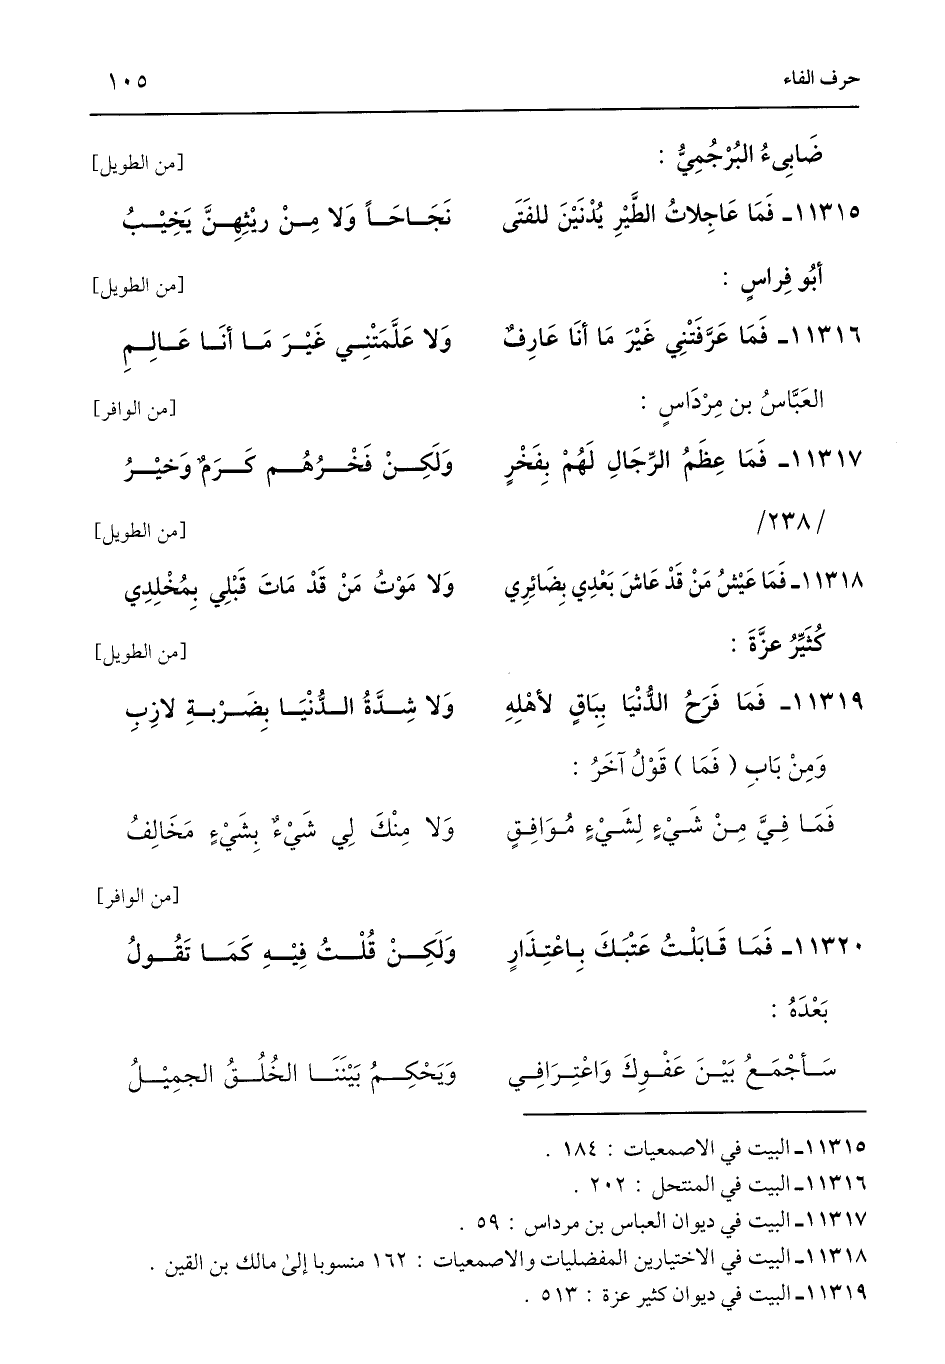 حرف الفاء ١٠٥
ضَابِىءُ البُرْجُمِيُّ : [من الطويل]
١١٣١٥ـ فَمَا عَاجِلاتُ الطَّيْرِ يُدْنَيْنَ للفَتَى نَجَـاحَـاً وَلا مِـنْ ريْثِهِـنَّ يَخِيْـبُ
أبُو فِراسٍ : [من الطويل]
١١٣١٦ـ فَمَا عَرَّفَتْنِي غَيْرَ مَا أنَا عَارِفٌ وَلا عَلَّمَتْنِـي غَيْـرَ مَـا أنَـا عَـالِـمِ
العَبَّاسُ بن مِرْدَاسٍ : [من الوافر]
١١٣١٧ـ فَمَا عِظَمُ الرِّجَالِ لَهُمْ بِفَخْرٍ وَلَكِـنْ فَخْـرُهُـم كَـرَمٌ وَخيْـرُ
/٢٣٨/ [من الطويل]
١١٣١٨ـ فَمَا عَيْشُ مَنْ قَدْ عَاشَ بَعْدِي بِضَائِرِي وَلا مَوْتُ مَنْ قَدْ مَاتَ قَبْلِي بِمُخْلِدِي
كُثَيِّرُ عزَّةَ : [من الطويل]
١١٣١٩ـ فَمَا فَرَحُ الدُّنْيَا بِبَاقٍ لأهْلِهِ وَلا شِـدَّةُ الـدُّنْيَـا بِضَـرْبـةِ لازِبِ
وَمِنْ بَابِ ( فَمَا ) قَوْلُ آخَرُ :
فَمَـا فِـيَّ مِـنْ شَـيْءٍ لِشَـيْءٍ مُـوَافِـقٍ وَلا مِنْكَ لِي شَيْءٌ بِشَيْءٍ مَخَالِفُ
[من الوافر]
١١٣٢٠ـ فَمَا قَـابَلْـتُ عَتْبَـكَ بِـاعْتِـذَارٍ وَلَكِـنْ قُلْـتُ فِيْـهِ كَمَـا تَقُـولُ
بَعْدَهُ :
سَـأجْمَـعُ بَيْـنَ عَفْـوِكَ وَاعْتِـرَافِـي وَيَحْكِـمُ بَيْنَنَـا الخُلُـقُ الجمِيْـلُ
١١٣١٥ـ البيت في الاصمعيات : ١٨٤ .
١١٣١٦ـ البيت في المنتحل : ٢٠٢ .
١١٣١٧ـ البيت في ديوان العباس بن مرداس : ٥٩ .
١١٣١٨ـ البيت في الاختيارين المفضليات والاصمعيات : ١٦٢ منسوبا إلىٰ مالك بن القين .
١١٣١٩ـ البيت في ديوان كثير عزة : ٥١٣ .